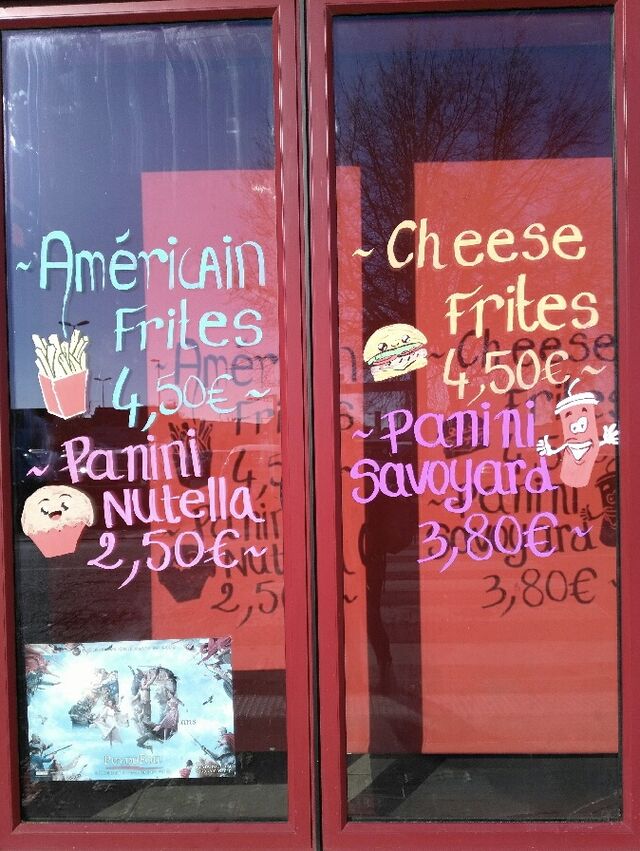 ~Américain
Frites
4,50€~
~Panini
Nutella
2,50€~
~Cheese
Frites
4,50€~
~Panini
Savoyard
3,80€~
40
ans